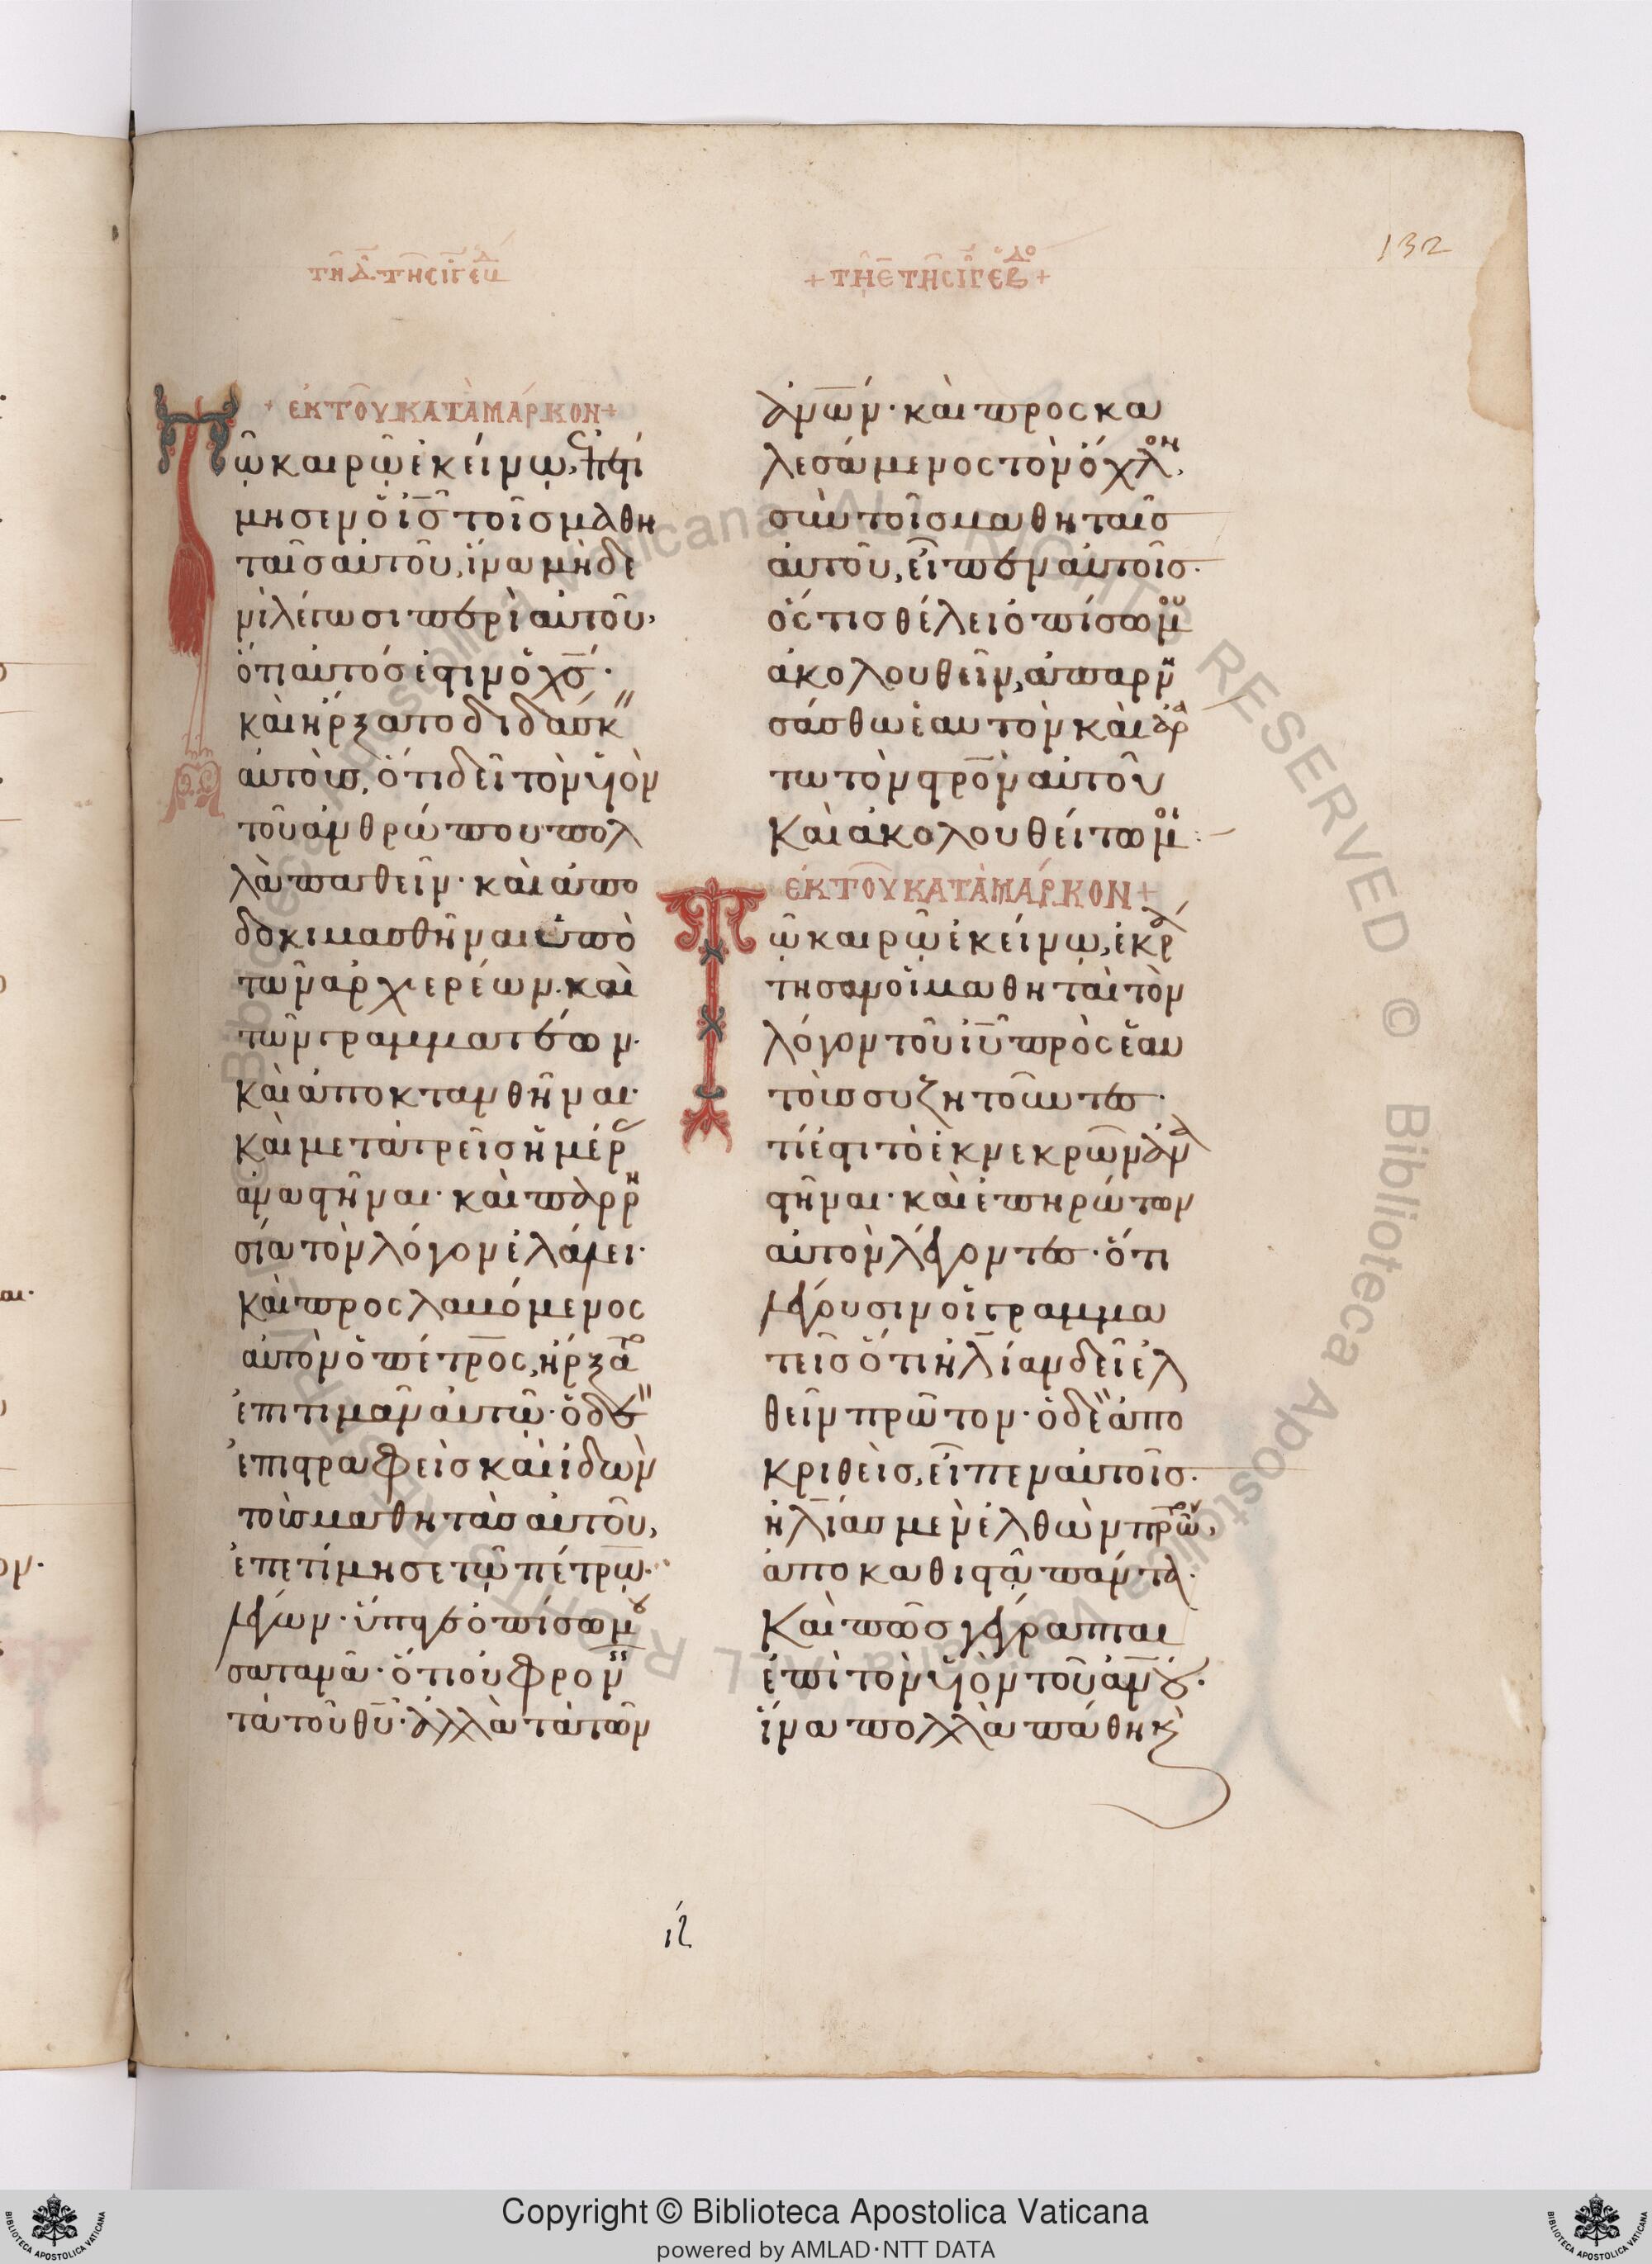 132
τῆ δ̄ τῆς ιγ ἑβδ
+ ἐκ τοῦ κατὰ μάρκον +
Τῶ καιρῶ ἐκείνω, ἐπετί
μησεν ὁ ις τοῖς μαθη
ταῖς αὐτοῦ, ἵνα μηδε
νὶ λέγωσι περὶ αὐτοῦ,
ὅτι αὐτός ἐστιν ὁ χς·
καὶ ἤρξατο διδάσκ
αὐτοὺς, ὅτι δεῖ τὸν υἱὸν
τοῦ ἀνθρώπου πολ
λὰ παθεῖν· καὶ ἀπο
δοκιμασθῆναι ὑπὸ
τῶν ἀρχιερέων· καὶ
τῶν γραμματέων·
καὶ ἀποκτανθῆναι·
καὶ μετὰ τρεῖς ἡμέρ
ἀναστῆναι· καὶ παρρη
σία τὸν λόγον ἐλάλει·
καὶ προσλαβόμενος
αὐτὸν ὁ πέτρος, ἤρξατο
ἐπιτιμᾶν αὐτῶ· ὁ δὲ
ἐπιστραφεὶς καὶ ἰδὼν
τοὺς μαθητὰς αὐτοῦ,
ἐπετίμησε τῶ πέτρω·
λέγων· ὕπαγε ὀπίσω μου
σατανᾶ· ὅτι οὐ φρονεῖς
τὰ τοῦ θυ· ἀλλὰ τὰ τῶν
+ τῆ ε̄ τῆς ιγ ἑβδο +
ἀνων· καὶ προσκα
λεσάμενος τὸν ὄχλον,
σὺν τοῖς μαθηταῖς
αὐτοῦ, εἶπεν αὐτοῖς·
ὅστις θέλει ὀπίσω μου
ἀκολουθεῖν, ἀπαρνη
σάσθω ἑαυτὸν καὶ ἀρά
τω τὸν στρον αὐτοῦ
καὶ ἀκολουθείτω μοι·
ἐκ τοῦ κατὰ μάρκον +
Τῶ καιρῶ ἐκείνω, ἐκρά
τησαν οἱ μαθηταὶ τὸν
λόγον τοῦ ιυ πρὸς ἑαυ
τοὺς συζητοῦντες·
τί ἐστι τὸ ἐκ νεκρῶν ἀνα
στῆναι· καὶ ἐπηρώτων
αὐτὸν λέγοντες· ὅτι
λέγουσιν οἱ γραμμα
τεῖς ὅτι ἠλίαν δεῖ ἐλ
θεῖν πρῶτον· ὁ δὲ ἀπο
κριθεὶς, εἶπεν αὐτοῖς·
ἠλίας μὲν ἐλθὼν πρῶτον,
ἀποκαθιστᾶ πάντα·
καὶ πῶς γέγραπται
ἐπὶ τὸν υἱὸν τοῦ ἀνου·
ἵνα πολλὰ πάθη κ
Copyright © Biblioteca Apostolica Vaticana
powered by AMLAD·NTT DATA